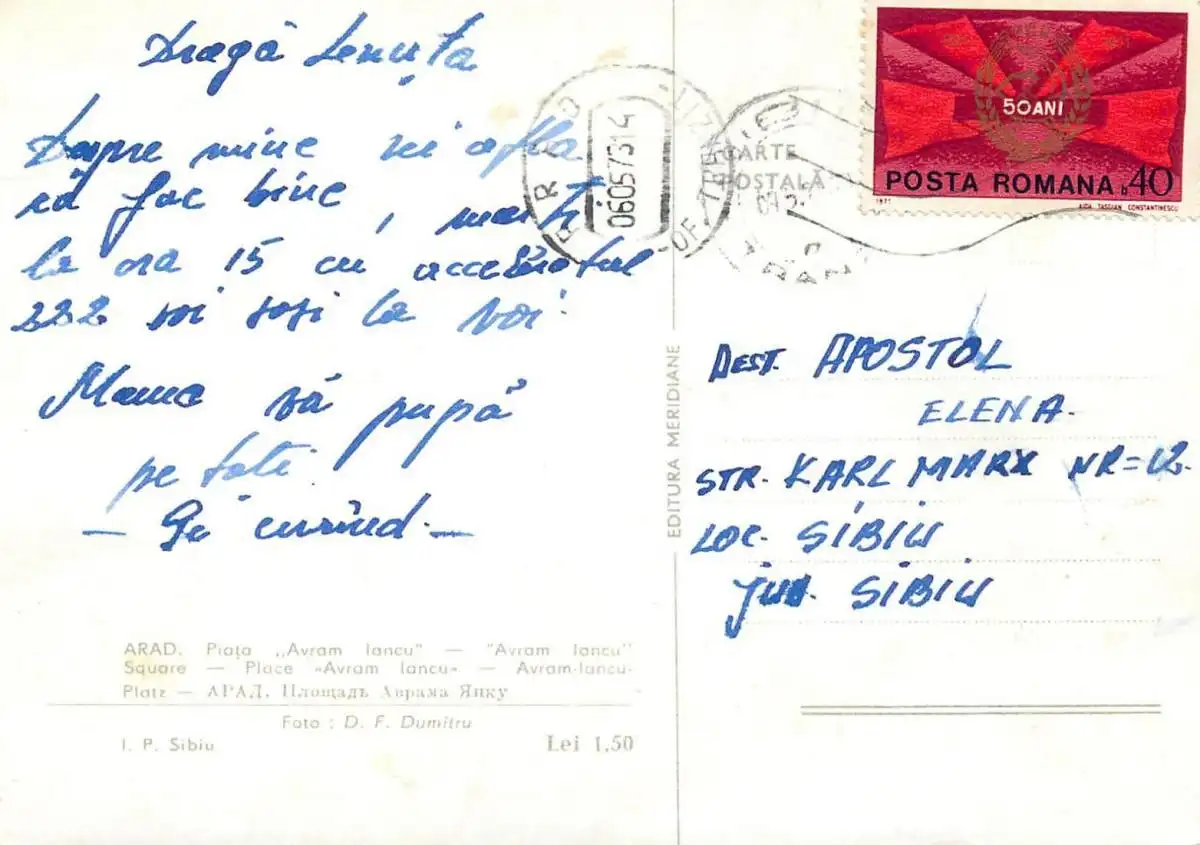 Dragă Lenuța
Despre mine vei afla
că fac bine, marți
la ora 15 cu acceleratul
222 voi sosi la voi.
Mama vă pupă
pe toti.
— curînd. —
ARAD. Piața „Avram Iancu" — "Avram Iancu"
Square — Place «Avram Iancu» — Avram-Iancu-
Platz — АРАД. Площадь Аврама Янку
Foto : D. F. Dumitru
I. P. Sibiu Lei 1,50
EDITURA MERIDIANE
CARTE
POSTALĂ
06057314
50 ANI
POSTA ROMANA b 40
1971 AIDA TASGIAN CONSTANTINESCU
DEST. APOSTOL
ELENA.
STR. KARL MARX NR=12.
LOC. SIBIU
JUD. SIBIU